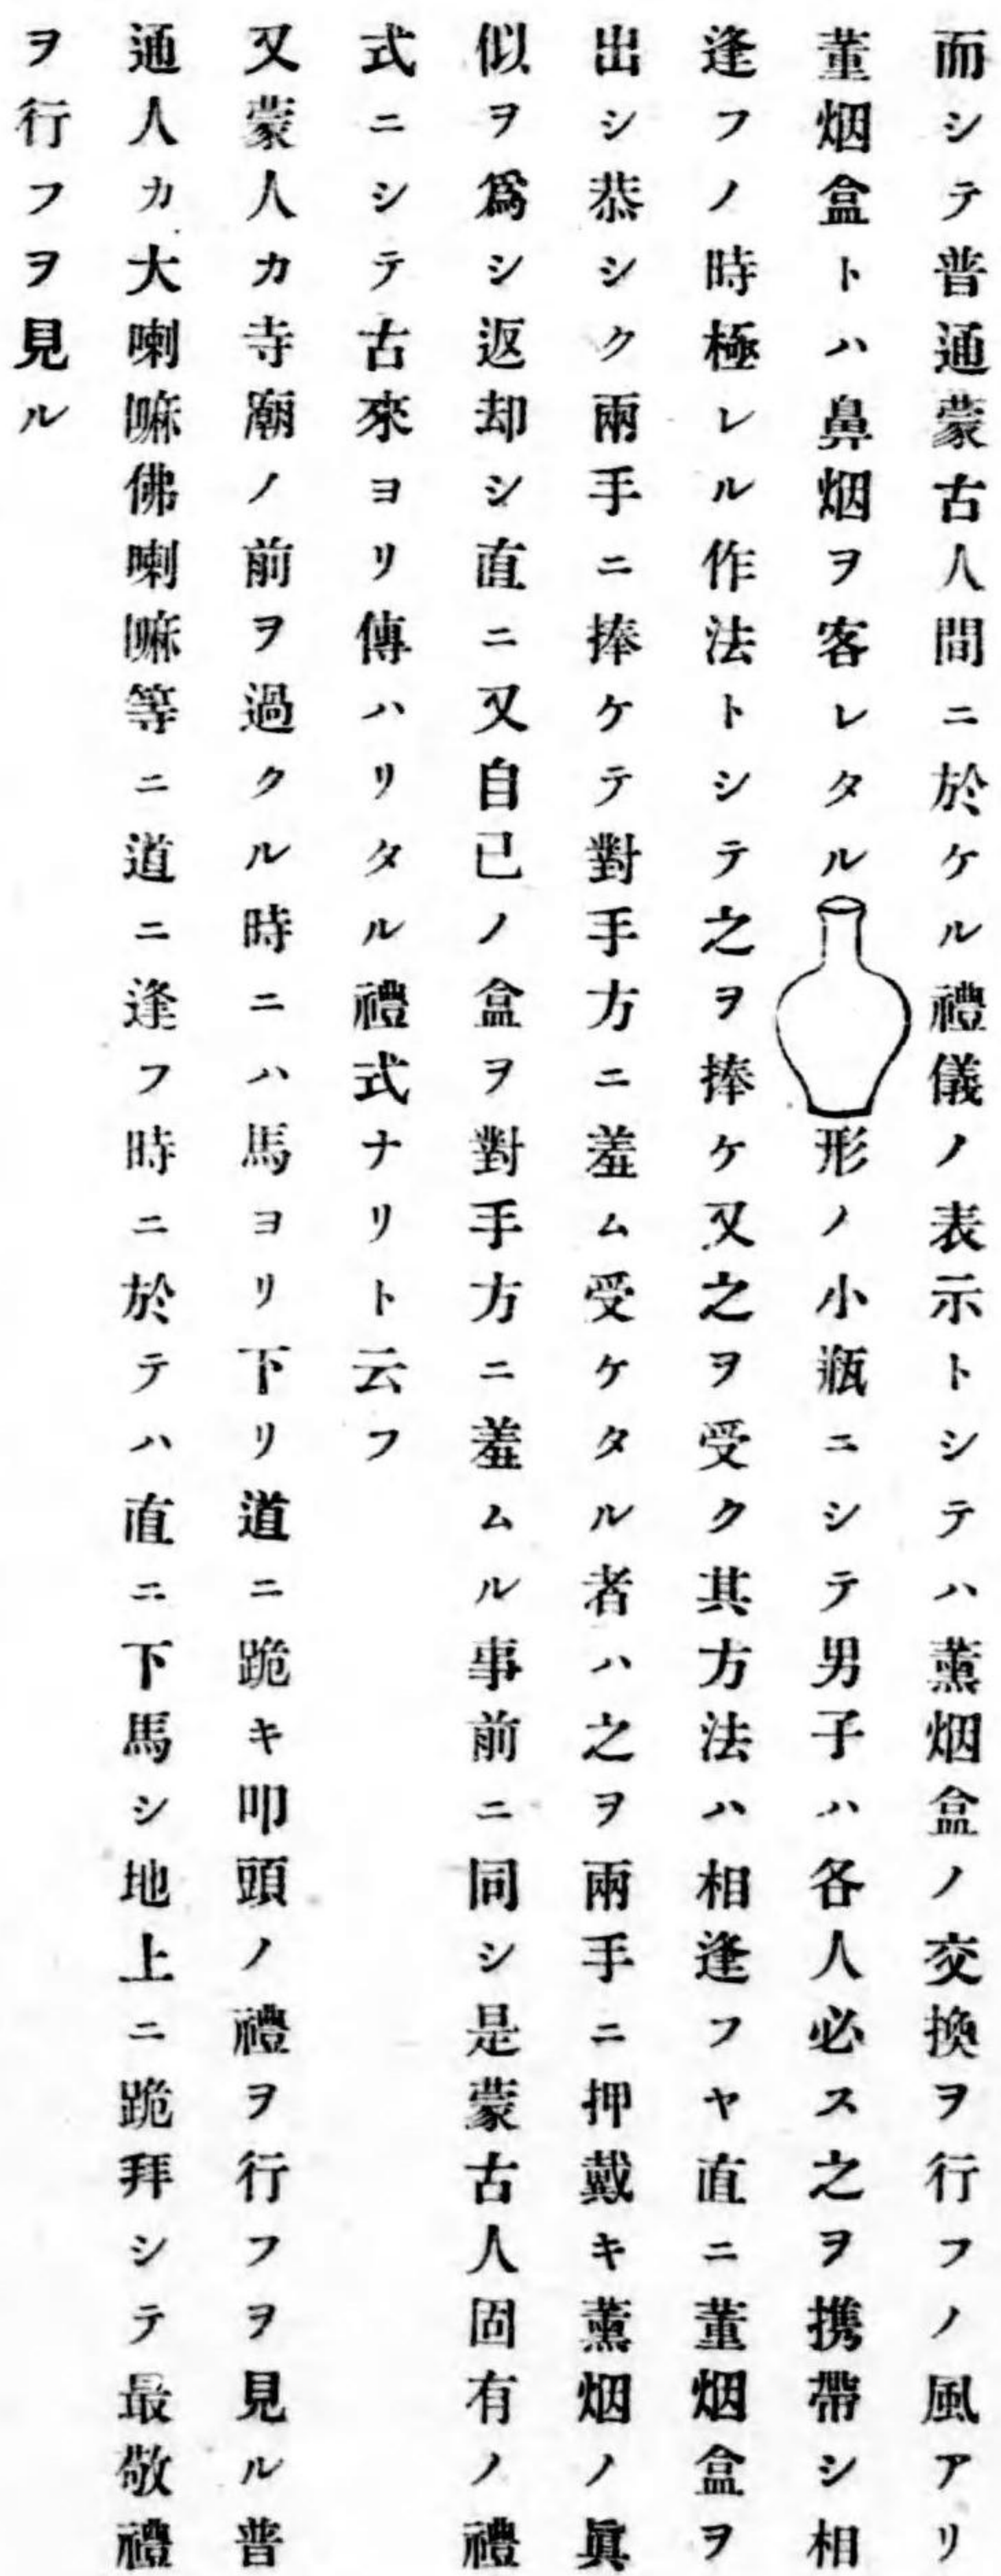 而シテ普通蒙古人間ニ於ケル禮儀ノ表示トシテハ薫烟盒ノ交換ヲ行フノ風アリ
董烟盒トハ鼻烟ヲ客レタル形ノ小瓶ニシテ男子ハ各人必ス之ヲ携帶シ相
逢フノ時極レル作法トシテ之ヲ捧ケ又之ヲ受ク其方法ハ相逢フヤ直ニ董烟盒ヲ
出シ恭シク兩手ニ捧ケテ對手方ニ羞ム受ケタル者ハ之ヲ兩手ニ押戴キ薫烟ノ眞
似ヲ爲シ返却シ直ニ又自己ノ盒ヲ對手方ニ羞ムル事前ニ同シ是蒙古人固有ノ禮
式ニシテ古來ヨリ傳ハリタル禮式ナリト云フ
又蒙人カ寺廟ノ前ヲ過クル時ニハ馬ヨリ下リ道ニ跪キ叩頭ノ禮ヲ行フヲ見ル普
通人カ大喇嘛佛喇嘛等ニ道ニ逢フ時ニ於テハ直ニ下馬シ地上ニ跪拜シテ最敬禮
ヲ行フヲ見ル